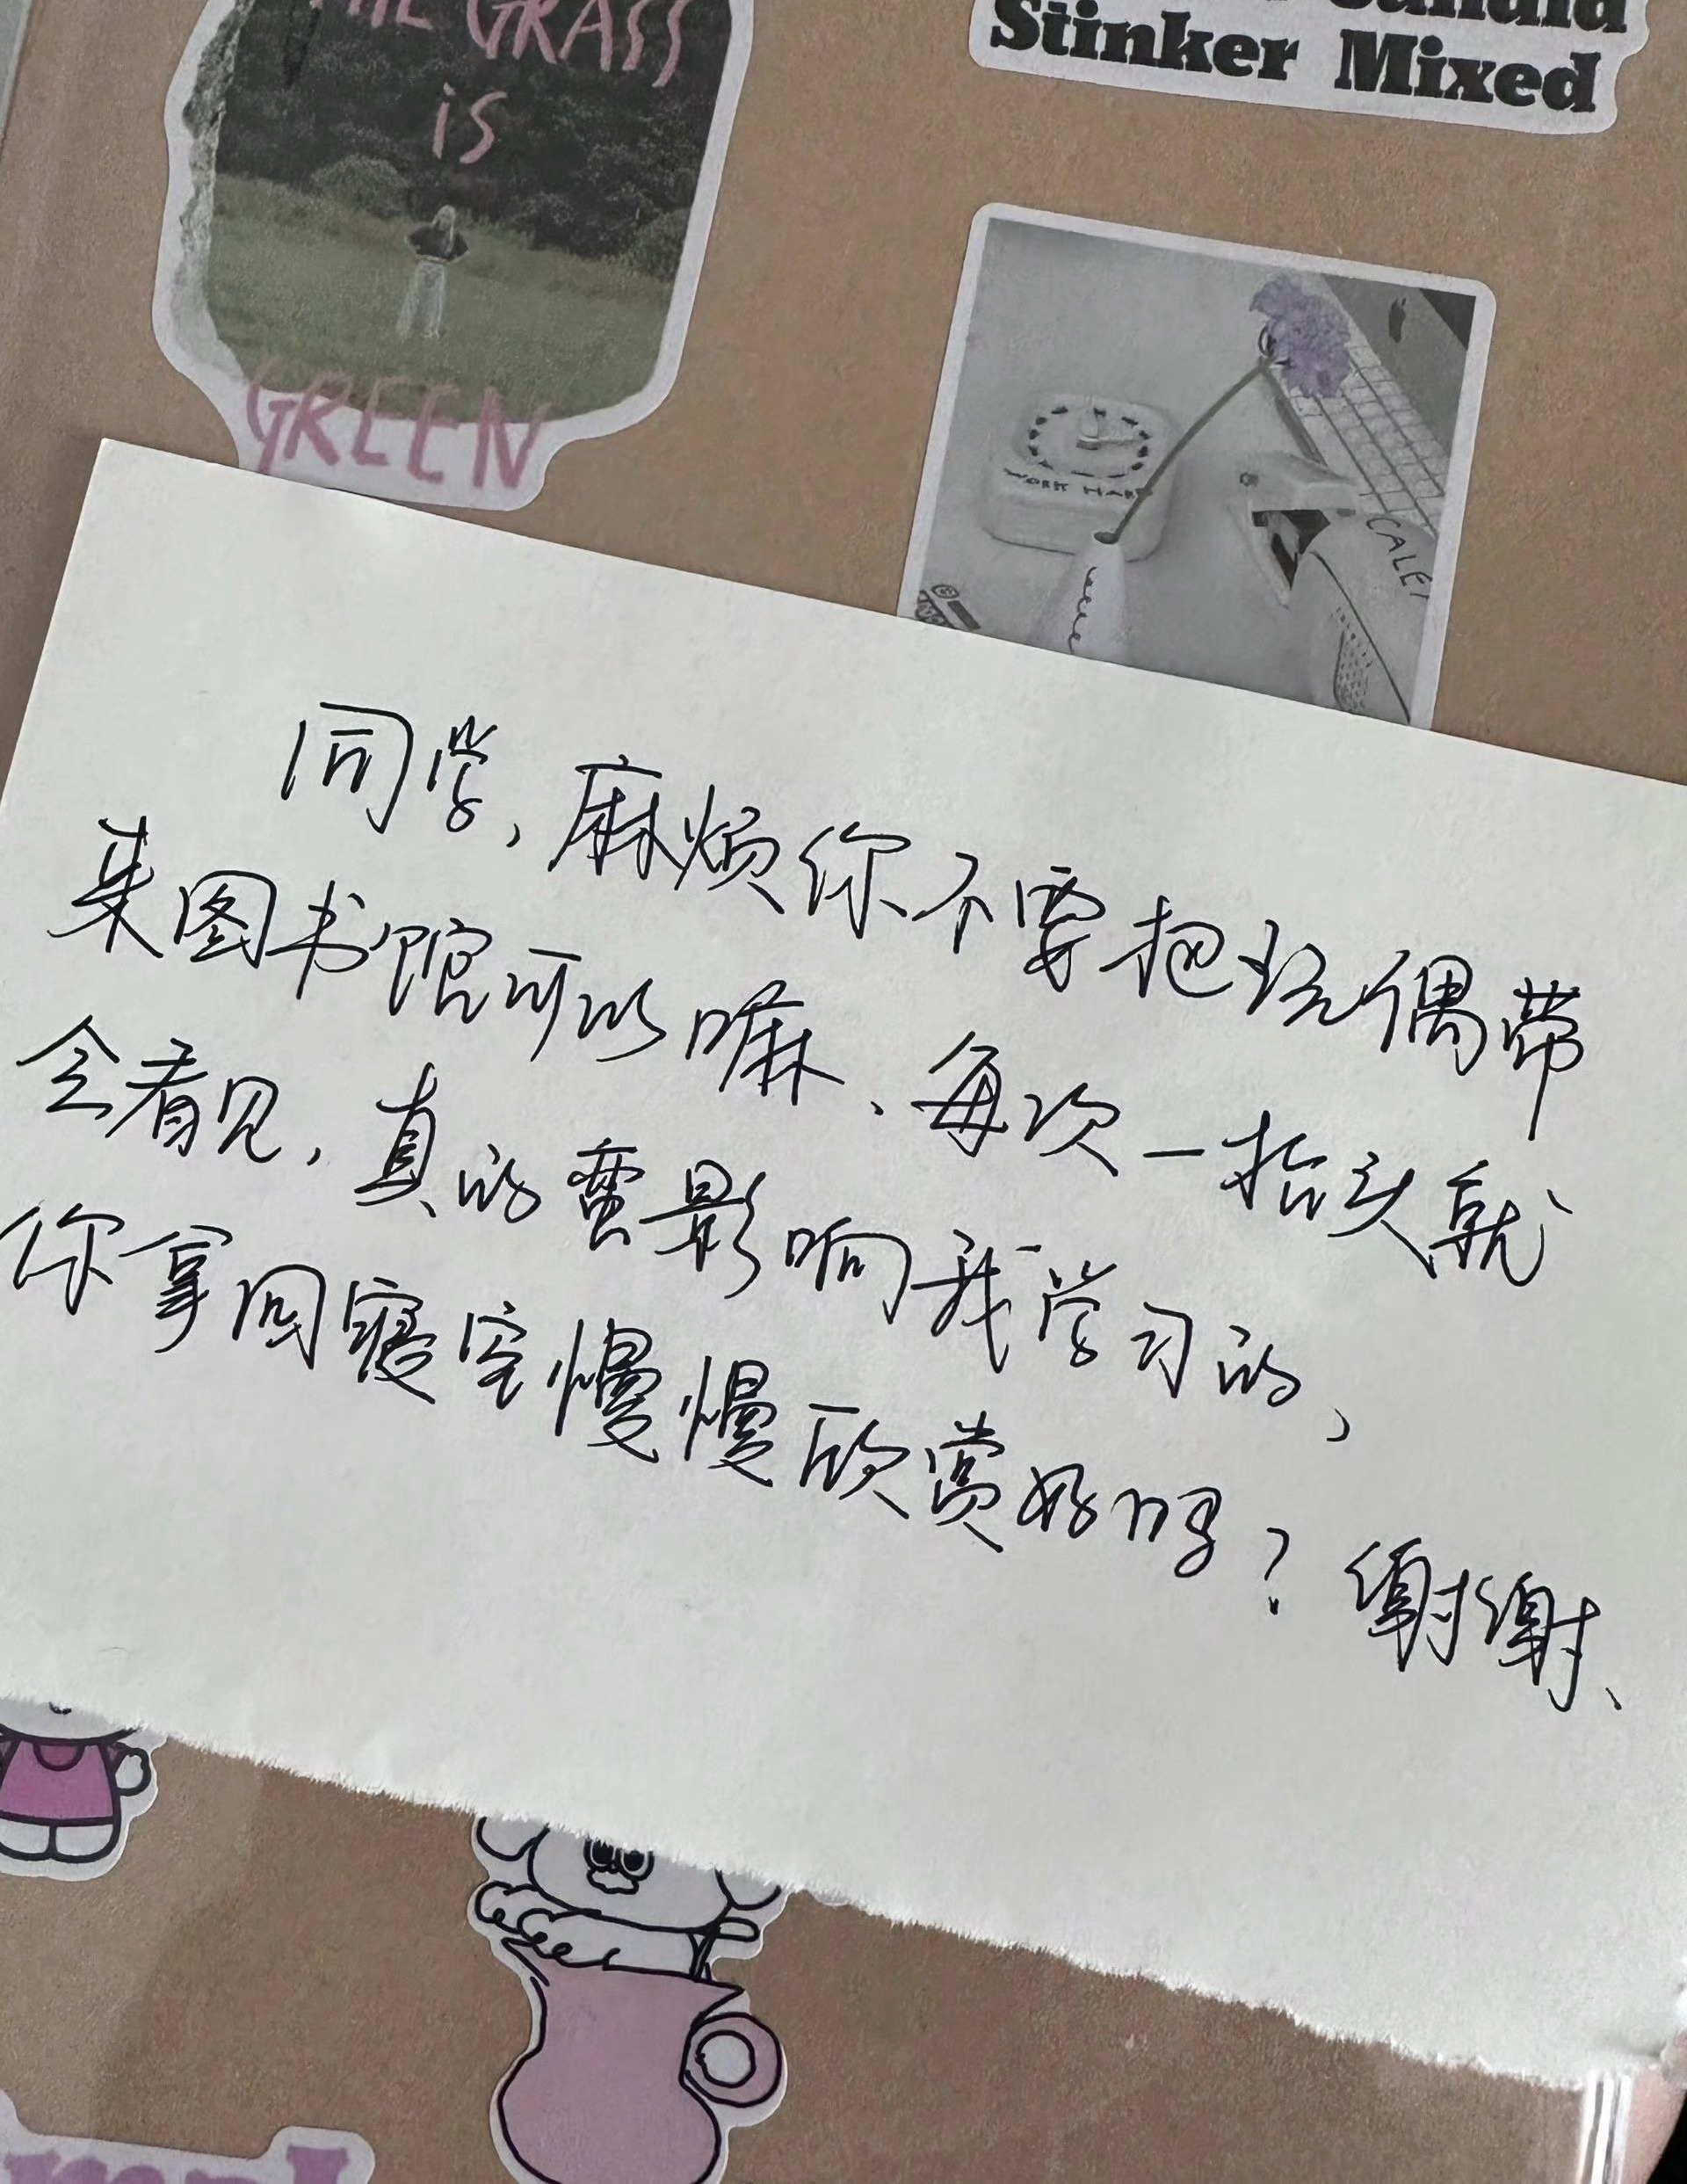 THE GRASS
is
GREEN
Stinker Mixed
WORK HARD
同学，麻烦你不要把玩偶带
来图书馆可以嘛、每次一抬头就
会看见，真的蛮影响我学习的，
你拿回寝室慢慢欣赏好吗？谢谢、